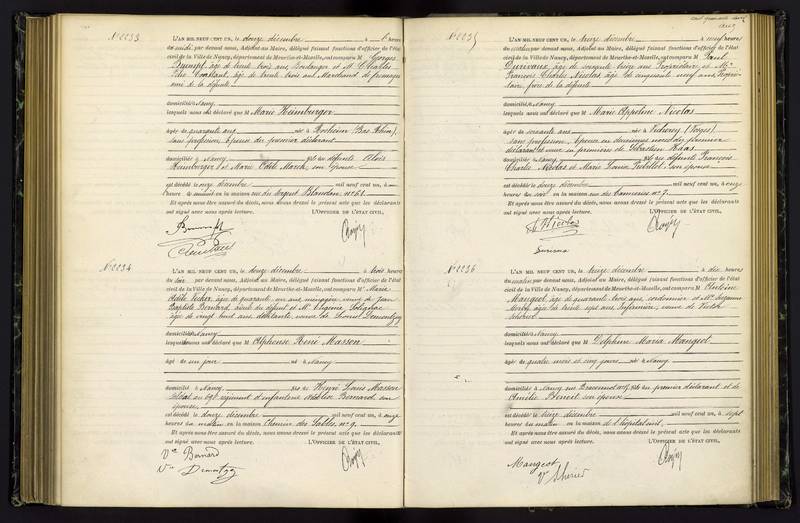 N° 2033
L'AN MIL NEUF CENT UN, le douze décembre à heures
du midi par devant nous, Adjoint au Maire, délégué faisant fonctions d'officier de l'état
civil de la Ville de Nancy, département de Meurthe-et-Moselle, ont comparu M Georges
âgé de trente trois ans Boulanger et M. Charles
Constant, âgé de trente trois ans Marchand de fromages
ami de la défunte
domiciliés à Nancy
lesquels nous ont déclaré que M Marie Heimburger
âgée de quarante ans née à Rosheim (Bas Rhin),
sans profession, épouse du premier déclarant
domiciliée à Nancy fille de défunts Aloïs
Heimburger et Marie Odile son épouse
est décédée le onze décembre mil neuf cent un, à
heures en la maison rue du Sergent Blandan n° 61
Et après nous être assuré du décès, nous avons dressé le présent acte que les déclarants
ont signé avec nous après lecture. L'OFFICIER DE L'ÉTAT CIVIL,
N° 2034
L'AN MIL NEUF CENT UN, le douze décembre à trois heures
du soir par devant nous, Adjoint au Maire, délégué faisant fonctions d'officier de l'état
civil de la Ville de Nancy, département de Meurthe-et-Moselle, ont comparu Me Marie
âgée de quarante un ans, ménagère, veuve de Jean
Baptiste Bernard, aïeule du défunt et Me Virginie
âgée de vingt huit ans, veuve de Demontzey
domiciliées à Nancy
lesquelles nous ont déclaré que M Alphonse René Masson
âgé de un jour né à Nancy
domicilié à Nancy fils de Henri Louis Masson
soldat au 69e régiment d'infanterie et Bernard son
épouse
est décédé le douze décembre mil neuf cent un, à onze
heures du matin en la maison Chemin des Sables n° 9
Et après nous être assuré du décès, nous avons dressé le présent acte que les déclarants
ont signé avec nous après lecture. L'OFFICIER DE L'ÉTAT CIVIL,
Ve Bernard
Ve Demontzey
N° 2035
L'AN MIL NEUF CENT UN, le treize décembre à neuf heures
du matin par devant nous, Adjoint au Maire, délégué faisant fonctions d'officier de l'état
civil de la Ville de Nancy, département de Meurthe-et-Moselle, ont comparu M Paul
âgé de soixante treize ans Propriétaire et Mr
François Charles Nicolas, âgé de cinquante neuf ans,
frère de la défunte
domiciliés à Nancy
lesquels nous ont déclaré que M Marie Appoline Nicolas
âgée de soixante ans née à (Vosges)
sans profession, épouse en deuxièmes noces du premier
déclarant et veuve en premières de Sébastien Haas
domiciliée à Nancy fille de défunts François
Charles Nicolas et Marie Louise son épouse
est décédée le douze décembre mil neuf cent un, à onze
heures du soir en la maison rue des Tanneries n° 7
Et après nous être assuré du décès, nous avons dressé le présent acte que les déclarants
ont signé avec nous après lecture. L'OFFICIER DE L'ÉTAT CIVIL,
Nicolas
N° 2036
L'AN MIL NEUF CENT UN, le treize décembre à dix heures
du matin par devant nous, Adjoint au Maire, délégué faisant fonctions d'officier de l'état
civil de la Ville de Nancy, département de Meurthe-et-Moselle, ont comparu M Antoine
Mangeot, âgé de quarante trois ans, cordonnier et Me Suzanne
âgée de trente sept ans, infirmière, veuve de Victor
domiciliés à Nancy
lesquels nous ont déclaré que M Delphine Maria Mangeot
âgée de quatre mois et cinq jours née à Nancy
domiciliée à Nancy rue fille du premier déclarant et de
Amélie Benoit son épouse
est décédée le treize décembre mil neuf cent un, à sept
heures du matin en la maison de l'hôpital civil
Et après nous être assuré du décès, nous avons dressé le présent acte que les déclarants
ont signé avec nous après lecture. L'OFFICIER DE L'ÉTAT CIVIL,
Mangeot